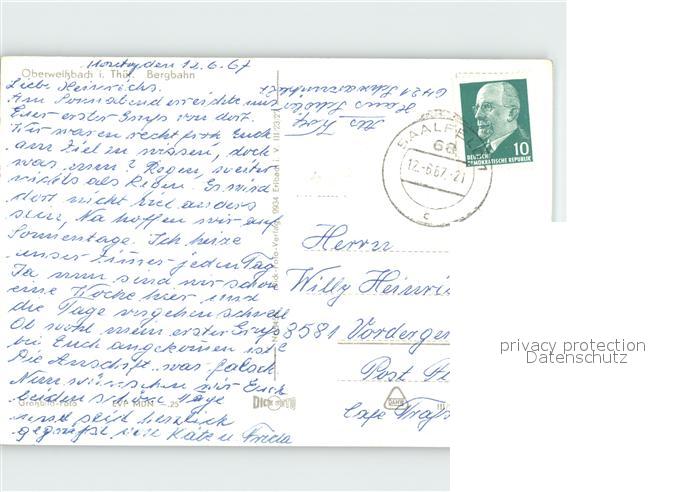 Montag den 12.6.67
Oberweißbach i. Thür. Bergbahn
Liebe Heinrichs.
Am Sonnabend erreichte uns
Euer erster Gruß von dort.
Wir waren recht froh Euch
am Ziel zu wissen, doch
was nun? Regen, weiter
nichts als Regen. Es wird
dort nicht viel anders
sein, Na hoffen wir auf
Sonnentage. Ich heize
unser Zimmer jeden Tag
Ja nun sind wir schon
eine Woche hier und
die Tage vergehen schnell
Ob wohl mein erster Gruß
bei Euch angekommen ist?
Die Anschrift war falsch
Nun wünschen wir Euch
beiden schöne Tage
Großbild-Foto EVP MDN -.25
und seid herzlich
gegrüßt von Käte u Frieda
9934 Erlbach i. V. III 23 27
SAALFELD
68
12.-6.67.-21
c
10
DEUTSCHE
DEMOKRATISCHE REPUBLIK
Herrn
Willy Heinri
3581 Vorderger
Post
Cafe
privacy protection
Datenschutz